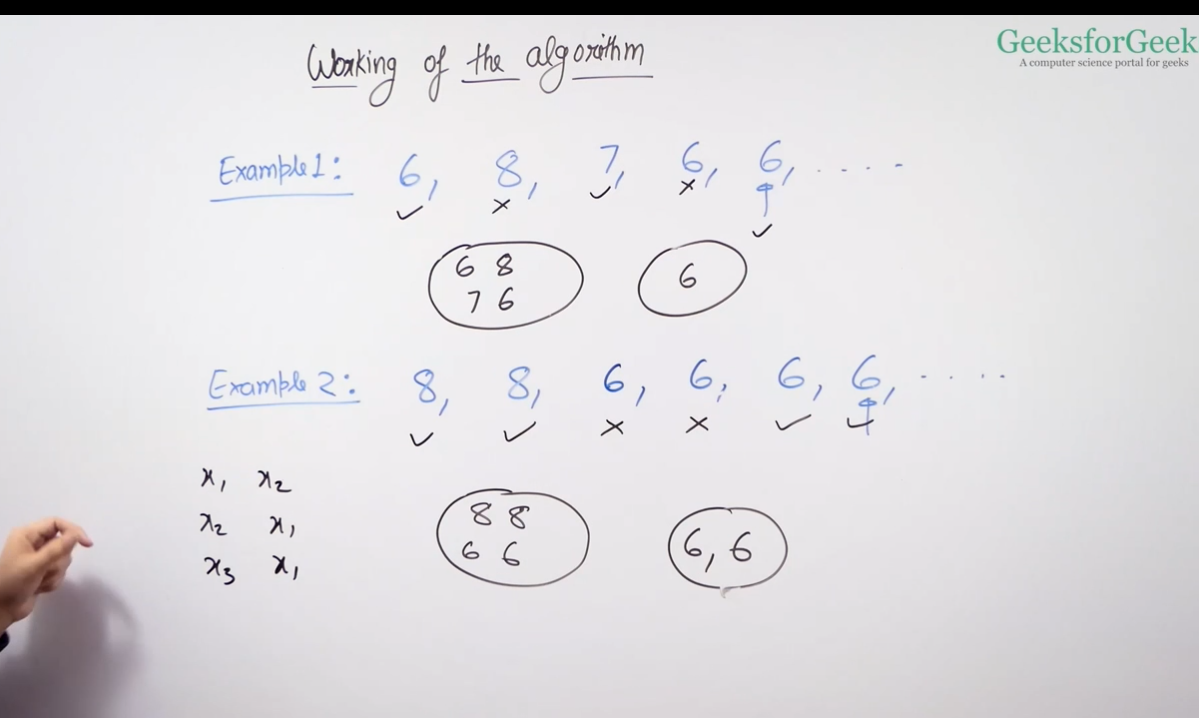 Working of the algorithm
GeeksforGeek
A computer science portal for geeks
Example 1: 6, 8, 7, 6, 6, ....
✓ × ✓ × ✓
6 8
7 6
6
Example 2: 8, 8, 6, 6, 6, 6, ....
✓ ✓ × × ✓ ✓
x₁ x₂
x₂ x₁
x₃ x₁
8 8
6 6
6, 6